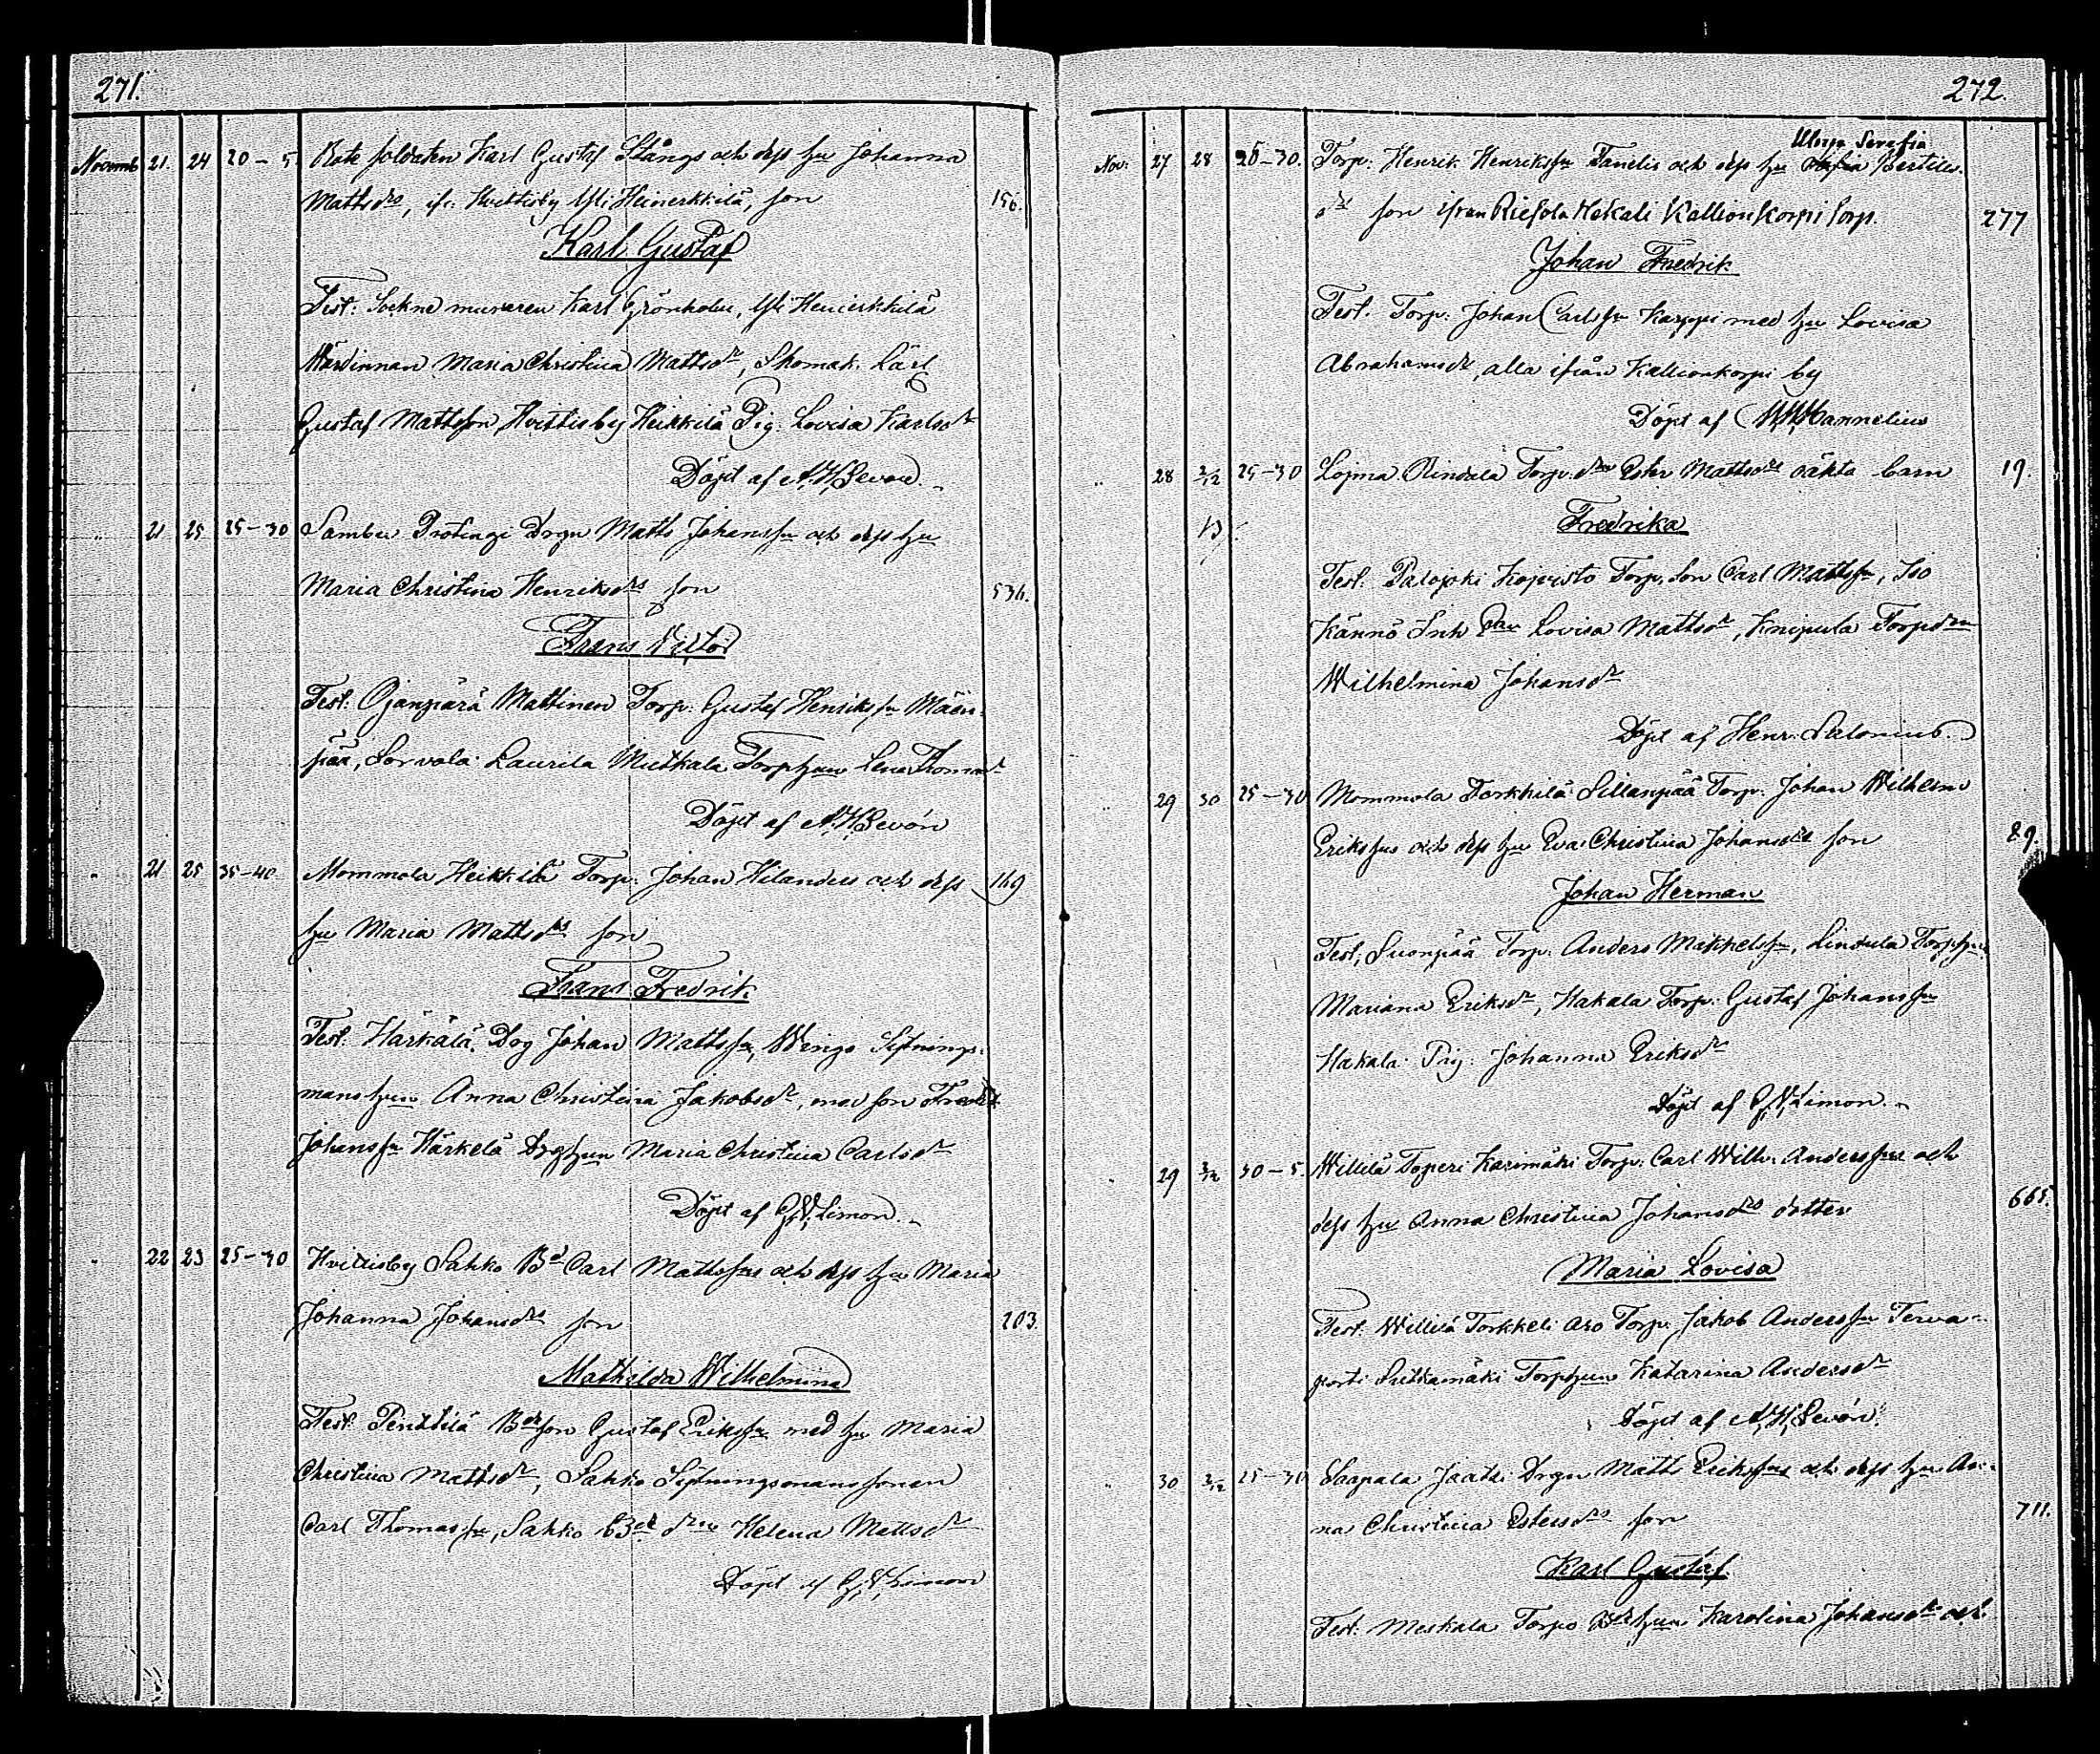 271.
Novemb 21. 24 20-5. Rote soldaten Karl Gustaf Stångs och dess hu Johanna
Mattsdrs, ifr. Hvittisby Yli Heinerkkilä, son 156.
Karl Gustaf
Test: Sockne muraren Karl Grönholm, Yli Heinerkkilä
Wärdinnan Maria Christina Mattsdr, Skomak. Lärl
Gustaf Mattsson, Hvittisby Heikkilä Pig. Lovisa Karlsdr
Döpt af A.W. Sevón.
" 21 25 25-30 Sambu Protingi Drgn Matts Johanssn och dess hu
Maria Christina Henriksdrs son 536.
Frans Viktor
Test: Ojanperä Mattinen Torp. Gustaf Henrikssn Mäen-
pää, Sorvola Laurila Mutkala Torphun Lena Thomasdr
Döpt af A.W. Sevón
" 21 25 35-40 Mommola Heikkilä Torp. Johan Hilanders och dess 169
hu Maria Mattsdrs son
Frans Fredrik
Test. Härkälä Drg Johan Mattssn, Wingo Sextnings-
mans hun Anna Christina Jakobsdr, med son Fredrik
Johanssn Härkälä Drghun Maria Christina Carlsdr
Döpt af G.W. Limon.
" 22 23 25-30 Hvittisby Sahko Bd Carl Mattssns och dess hu Maria
Johanna Johansdrs son 203.
Mathilda Wilhelmina
Test: Penttilä Bdeson Gustaf Erikssn med hu Maria
Christina Mattsdr, Sahko Sextningsmanssonen
Carl Thomassn, Sahko Bde drn Helena Mattsdr
Döpt af G.W. Limon
272.
Ulrika Serafia
Nov. 27 28 25-30. Torp. Henrik Henrikssn Fanelis och dess hu Sofia Bertils-
drs son ifrån Riesola Hekali Kallionkorpi torp. 277
Johan Fredrik
Test. Torp. Johan Carlssn Karppi med hu Lovisa
Abrahamsdr, alla ifrån Kallionkorpi by
Döpt af W. Kannelius
" 28 2/12 25-30 Lopma Rindala Torp. drn Ester Mattsdrs oäkta barn 19.
Fredrika
Test. Palojoki Kojvisto Torp. son Carl Mattssn, Iso
Kännö Inh Drn Lovisa Mattsdr, Knipula Torpdrn
Wilhelmina Johansdr
Döpt af Henr. Salonius.
" 29 30 25-30 Mommola Torkkilä Sillanpää Torp. Johan Wilhelm
Erikssns och dess hu Eva Christina Johansdrs son 89.
Johan Herman
Test; Suonpää Torp. Anders Mikkelssn, Lintula Torphun
Mariana Eriksdr, Hakala Torp. Gustaf Johanssn
Hakala Pig: Johanna Eriksdr
Döpt af G.W. Limon.
" 29 3/12 30-5. Willilä Toperi Karimäki Torp. Carl Wilh. Anderssns och
dess hu Anna Christina Johansdrs dotter 665.
Maria Lovisa
Test. Willilä Torkkeli Aro Torp. Jakob Anderssn Terva-
porti Suttamäki Torphun Katarina Andersdr
Döpt af A.W. Sevón.
" 30 2/12 25-30 Haapala Jaatti Drgn Matts Erikssns och dess hu An-
na Christina Estersdrs son 711.
Karl Gustaf
Test: Meskala Torpo Bde hun Karolina Johansdr och